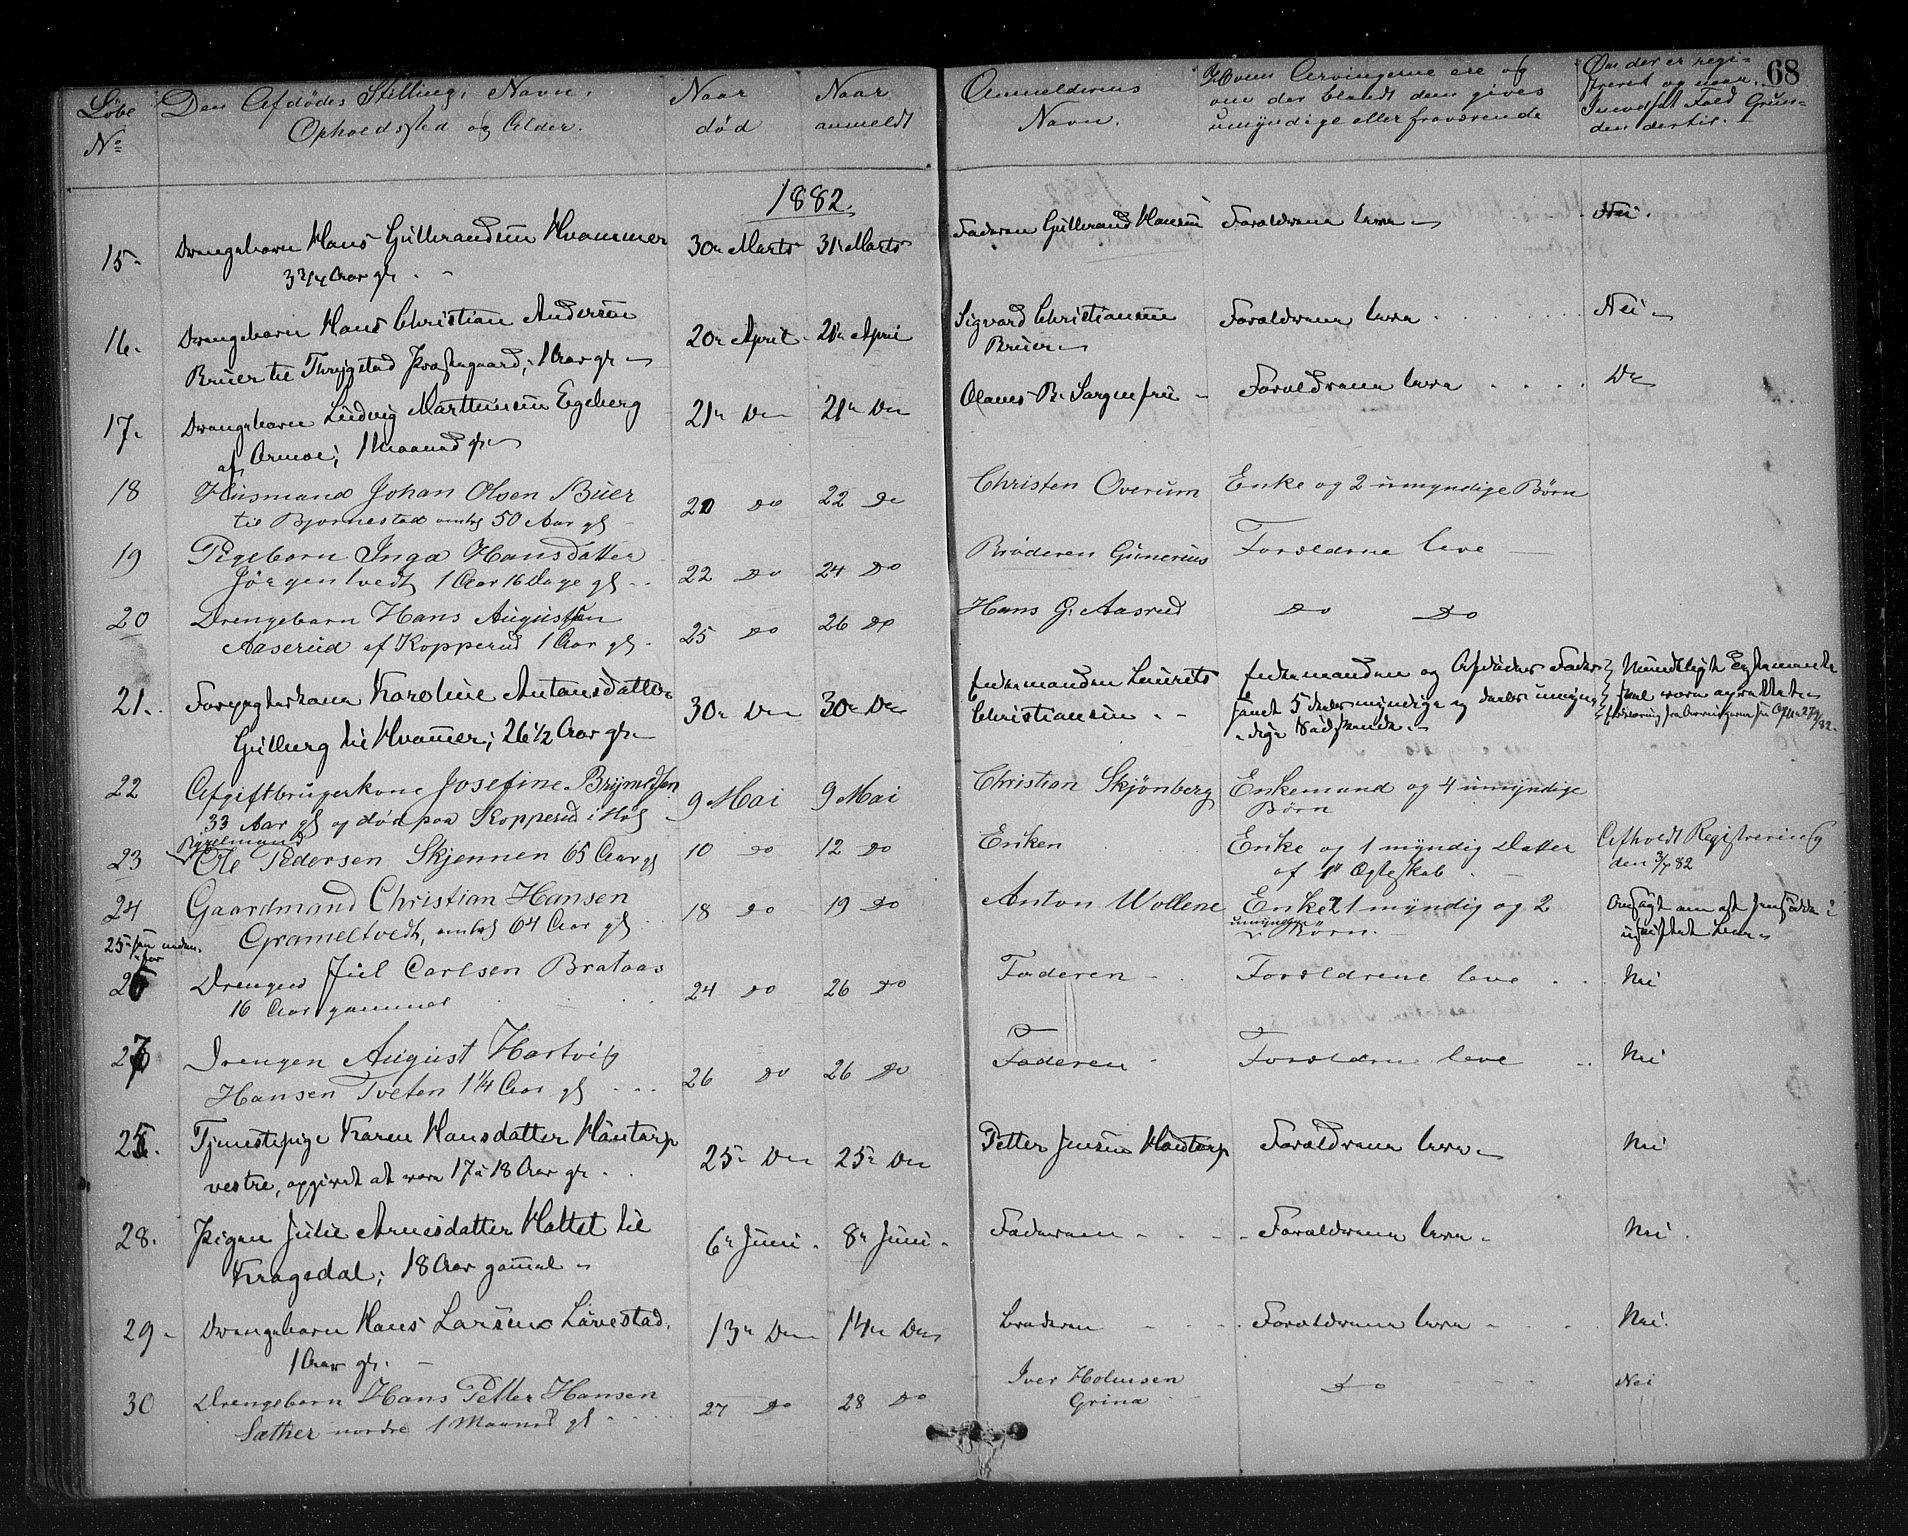 68
Løbe
No
Den Afdødes Stilling, Navn,
Opholdssted og Alder.
Naar
død
Naar
anmeldt
Anmelderens
Navn.
Hvem Arvingerne ere og
om der blandt dem gives
umyndige eller fraværende
Om der er regi-
streret og naar.
I modsat Fald Grun-
den dertil.
1882.
15. Drengebarn Hans Gulbrandsen Hvammer 30te Marts 31te Marts Faderen Gulbrand Hansen Forældrene leve Nei.
3 3/4 Aar gl.
16. Drengebarn Hans Christian Andersen 20de April 21de April Sigvard Christiansen Forældrene leve Nei
Bruer til Præstegaard, 1 Aar gl. Bruer
17. Drengebarn Ludvig Martinsen Egeberg 21de Do 21de Do Olaves B. Sorgenfri Forældrene leve Do
af 1 Maaned gl.
18 Husmand Johan Olsen Buer 21 Do 22 Do Christen Overum Enke og 2 umyndige Børn
til Bjørnestad omtr. 50 Aar gl
19 Pigebarn Inga Hansdatter 22 Do 24 Do Broderen Gunerius Forældrne leve
Jørgentvedt 1 Aar 16 Dage gl
20 Drengebarn Hans Augustsen 25 Do 26 Do Hans G. Aasrud Do Do
Aaserud af Kopperud 1 Aar gl.
21. Forpagterkone Karoline Antonsdatter 30te Do 30te Do Enkemanden Laurits Enkemanden og Afdødes Fader Mundtligt Testamente
Gulberg til Hvammer; 26 1/2 Aar gl. Christiansen samt 5 dels myndige og dels umyn- skal være oprettet
dige Sødskende.
22 Afgiftbrugerkone Josefine Brynildsen 9 Mai 9 Mai Christian Skjønberg Enkemand og 4 umyndige
33 Aar gl og død paa Kopperud i Hol Børn
23 Ole Pedersen Skjennen 65 Aar gl 10 Do 12 Do Enken Enke og 1 myndig Datter Afholdt Registrering
af 1st Ægteskab. den 3/7 82
24 Gaardmand Christian Hansen 18 Do 19 Do Anton Wollene Enke 1 myndig og 2
Grameltvedt, omtr 64 Aar gl umyndige Børn. uskiftet
25 sen neden-
for
26 Drengen Juel Carlsen Brataas 24 Do 26 Do Faderen Forældrene leve Nei
16 Aar gammel
27 Drengen August Hartvig 26 Do 26 Do Faderen Forældrne leve Nei
Hansen Tveten 1 1/4 Aar gl
25. Tjenestepige Karen Hansdatter Hantorp 25de Do 25de Do Petter Jensen Hantorp Forældrene leve Nei
vestre, opgivet at være 17 à 18 Aar gl.
28. Pigen Julie Arnesdatter Hattet til 6te Juni 8de Juni Faderen Forældrene leve Nei.
Kragsdal; 18 Aar gammel
29 Drengebarn Hans Larsen Løvestad. 13de Do 14de Do Broderen Forældrene leve Nei.
1 Aar gl.
30 Drengebarn Hans Petter Hansen 27 Do 28 Do Iver Holmsen Do Nei
Sæther nordre 1 Maaned gl Grina